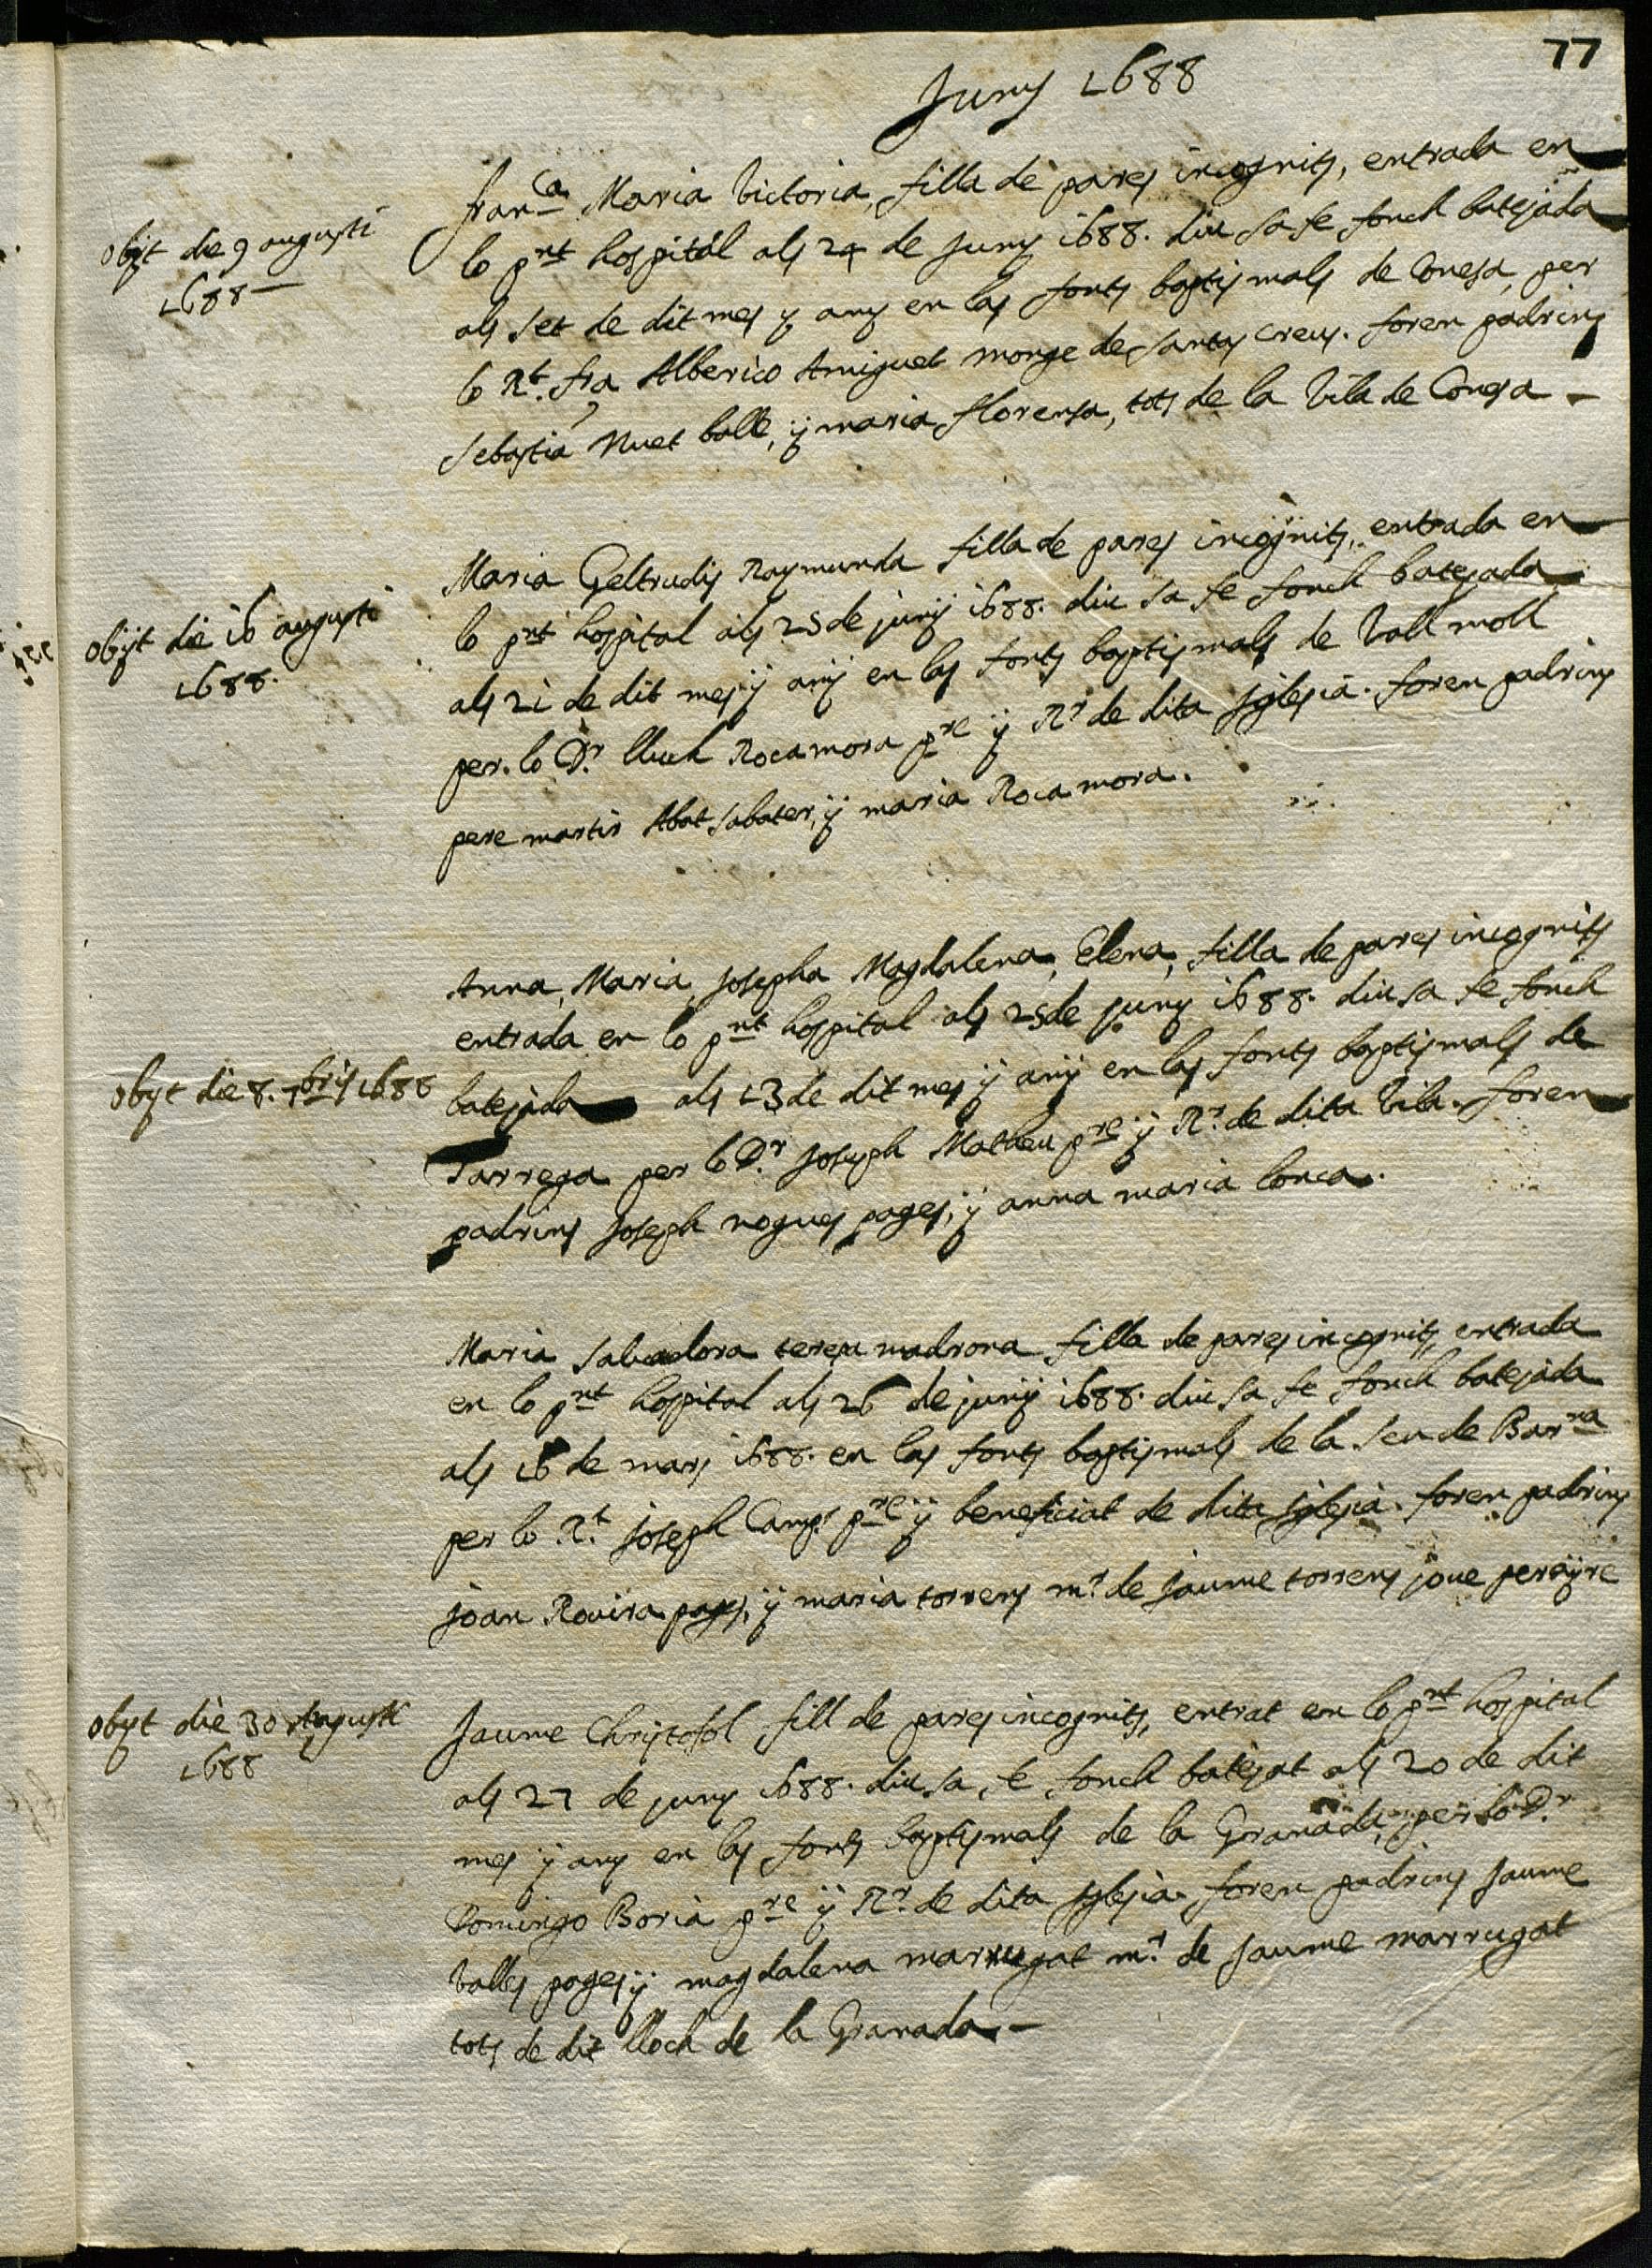 77
Juny 1688
obijt die 9 augusti
1688
fran.ca Maria Victoria, filla de pares incognits, entrada en
lo pnt hospital als 24 de Juny 1688. diu sa fe fonch batejada
als set de dit mes y any en las fonts baptismals de Conesa, per
lo Rt. fra Alberico Amiguet monge de santas creus. foren padrins
Sebastia Nuet balle, ÿ maria florensa, tots de la Vila de Conesa
obijt die 16 augusti
1688.
Maria Geltrudis Raymunda filla de pares incognits, entrada en
lo pnt hospital als 25 de juny 1688. diu sa fe fonch batejada
als 21 de dit mes ÿ anÿ en las fonts baptismals de Vallmoll
per lo Dr. lluch Rocamora pre ÿ Rr de dita Iglesia. foren padrins
pere martir Abat sabater, ÿ maria Rocamora.
obijt die 8. 7bris 1688
Anna, Maria, Josepha Magdalena, Elena, filla de pares incognits
entrada en lo pnt hospital als 25 de juny 1688. diu sa fe fonch
batejada als 13 de dit mes ÿ anÿ en las fonts baptismals de
Tarrega per lo Dr. Joseph Matheu pre ÿ Rr. de dita Vila. foren
padrins Joseph nogues pages, ÿ anna maria Conca.
Maria Salvadora teresa madrona filla de pares incognits, entrada
en lo pnt hospital als 26 de junÿ 1688. diu sa fe fonch batejada
als 16 de mars 1688. en las fonts baptismals de la Seu de Barna
per lo Rt. Joseph Camps pre ÿ beneficiat de dita Iglesia. foren padrins
Joan Rovira pages, ÿ maria torrens mr. de Jaume torrens jove perayre
obijt die 30 Augusti
1688
Jaume Christofol fill de pares incognits, entrat en lo pnt hospital
als 27 de juny 1688. diu sa fe fonch batejat als 20 de dit
mes ÿ any en las fonts baptismals de la Granada, per lo Dr.
Domingo Boria pre ÿ Rr. de dita Iglesia. foren padrins Jaume
Valles pages ÿ magdalena marrugat mr. de Jaume marrugat
tots de dit lloch de la Granada